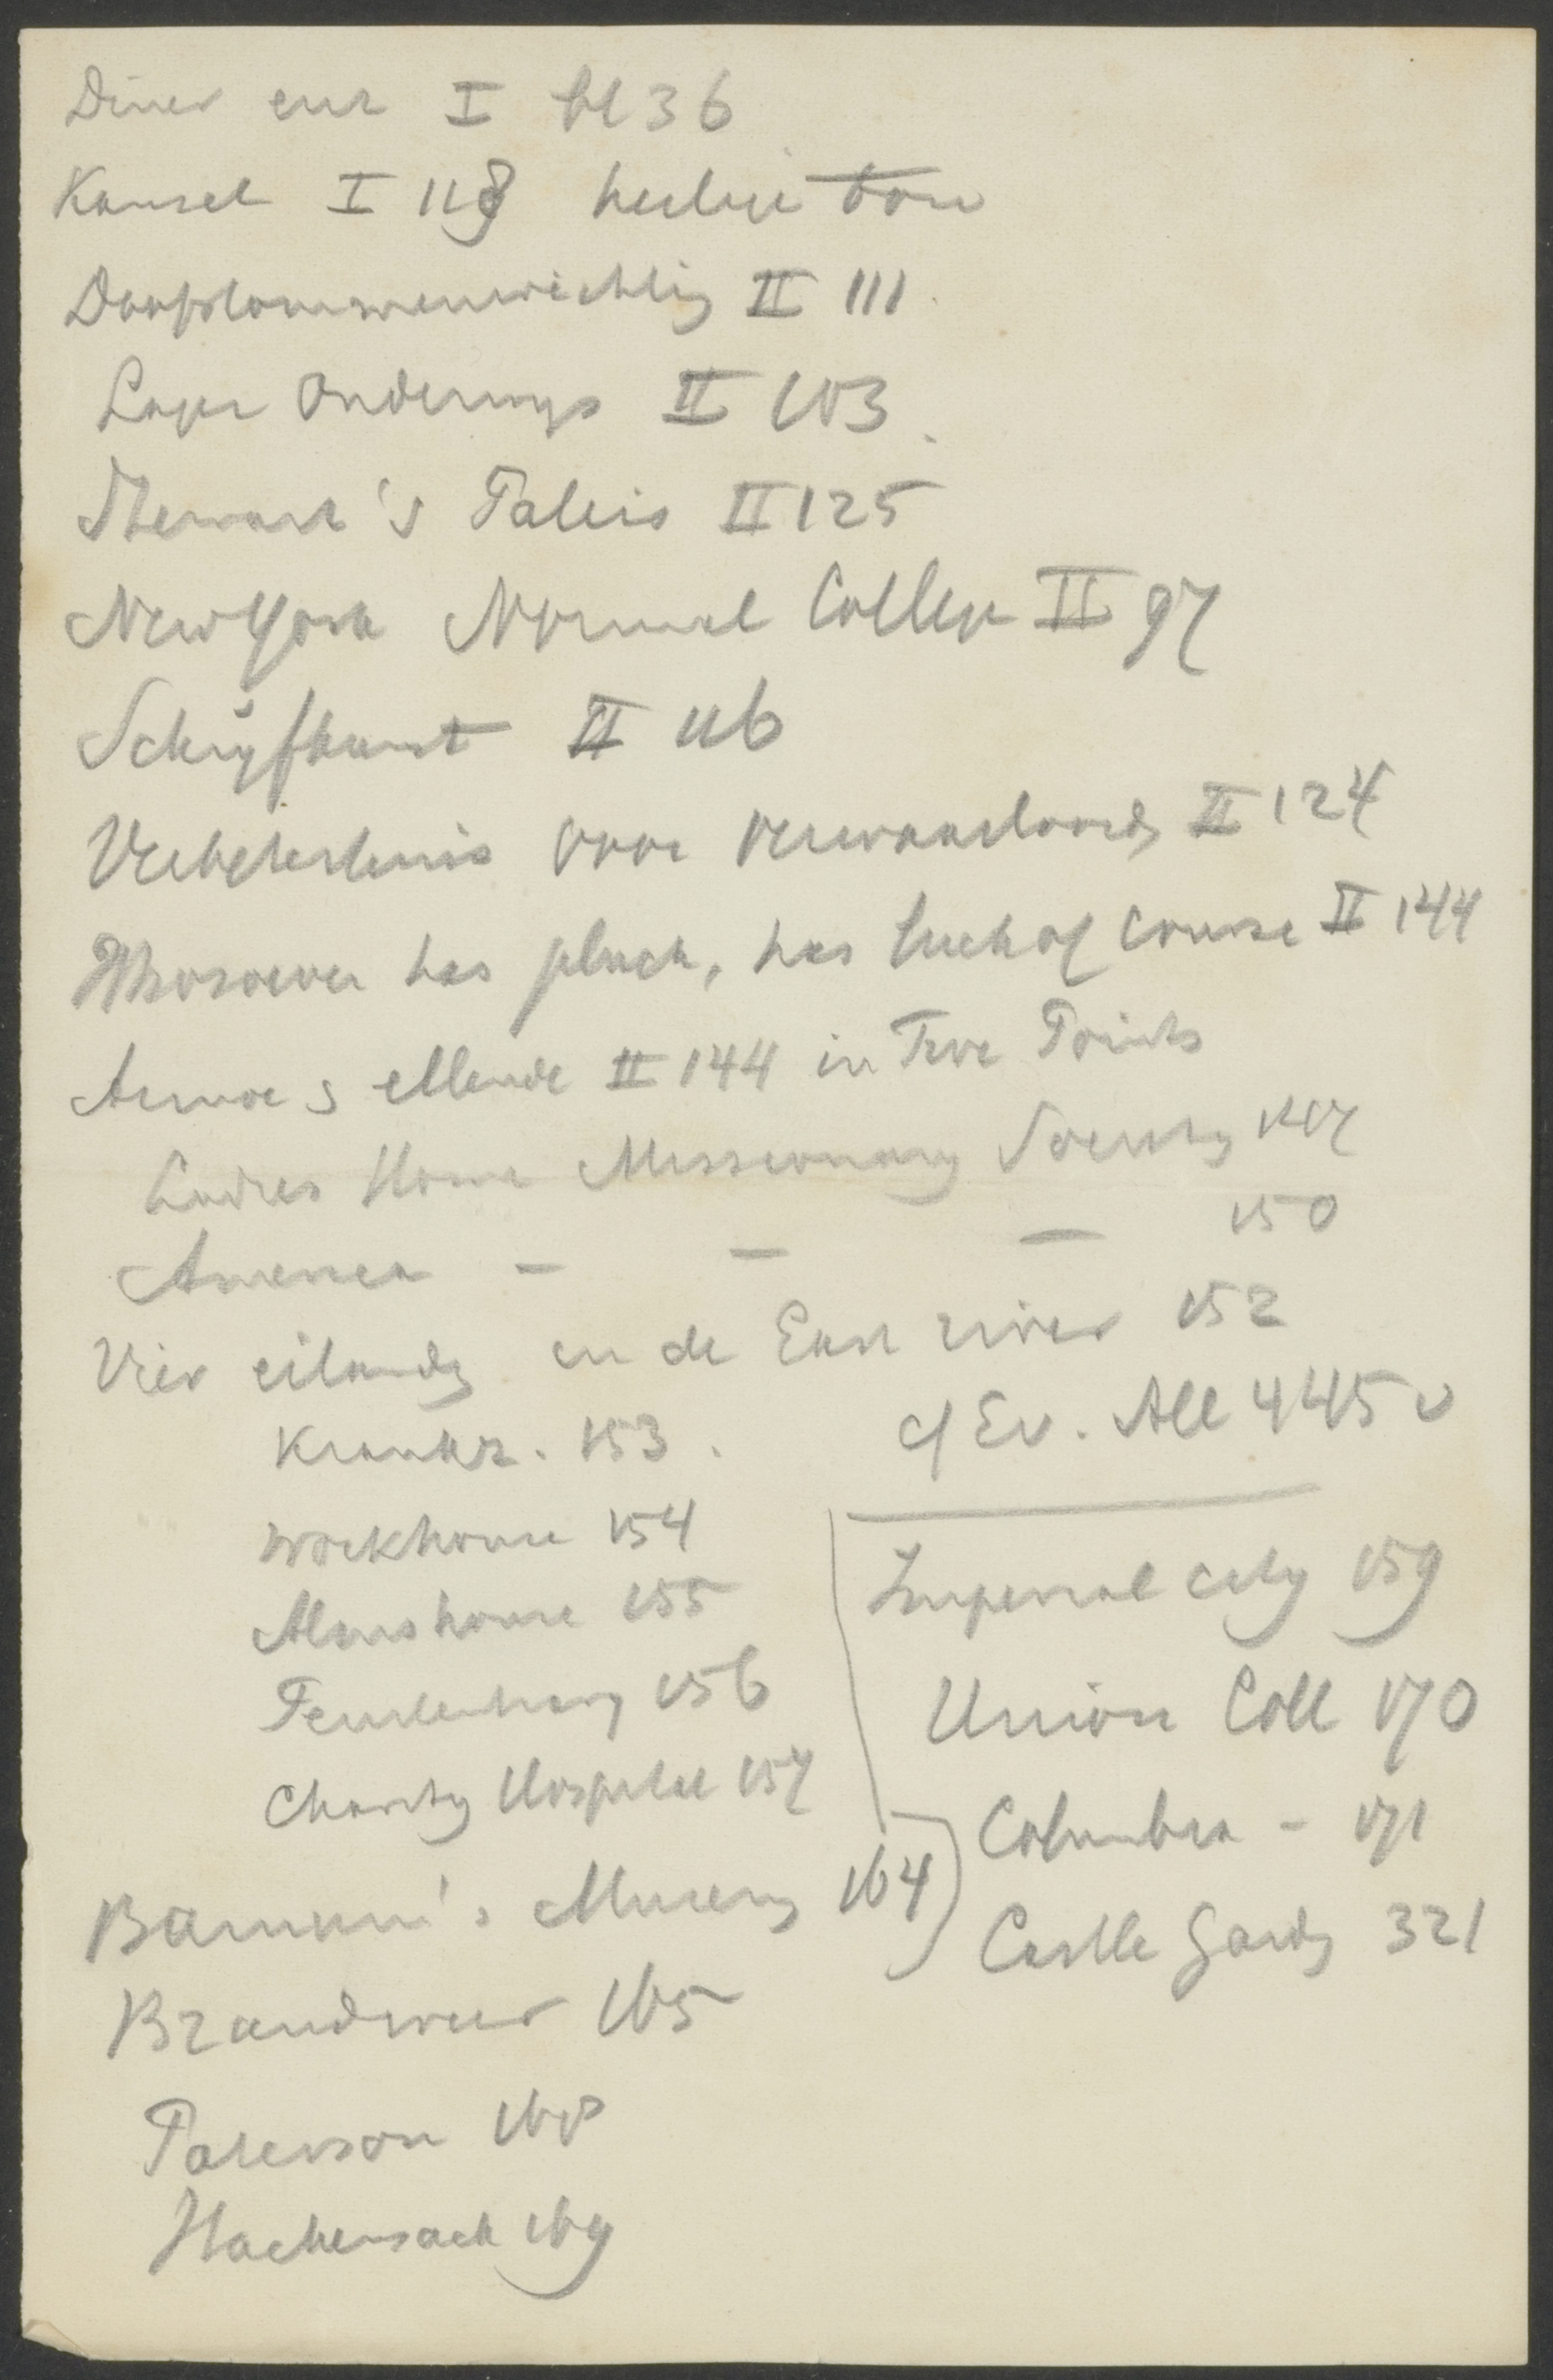 Diner enz I bl 36
Kansel I 118 heilige toon
II 111
Lager Onderwys II 103
Stewart's Paleis II 125
New York Normal College II 97
Schryfkunst II 116
II 124
Whosoever has pluck, has luck of course II 144
Armoe & ellende II 144 in Five Points
Ladies Home Missionary Society 147
America - - - 150
Vier eilanden in de East river 152
Krankz. 153.
cf Ev. All 445 v
Workhouse 154
Almshouse 155
Penitentiary 156
Charity Hospital 157
Barnum's Museum 164
Brandweer 165
Paterson 168
Hackensack 169
Imperial city 159
Union Coll 170
Columbia - 171
Castle Garden 321